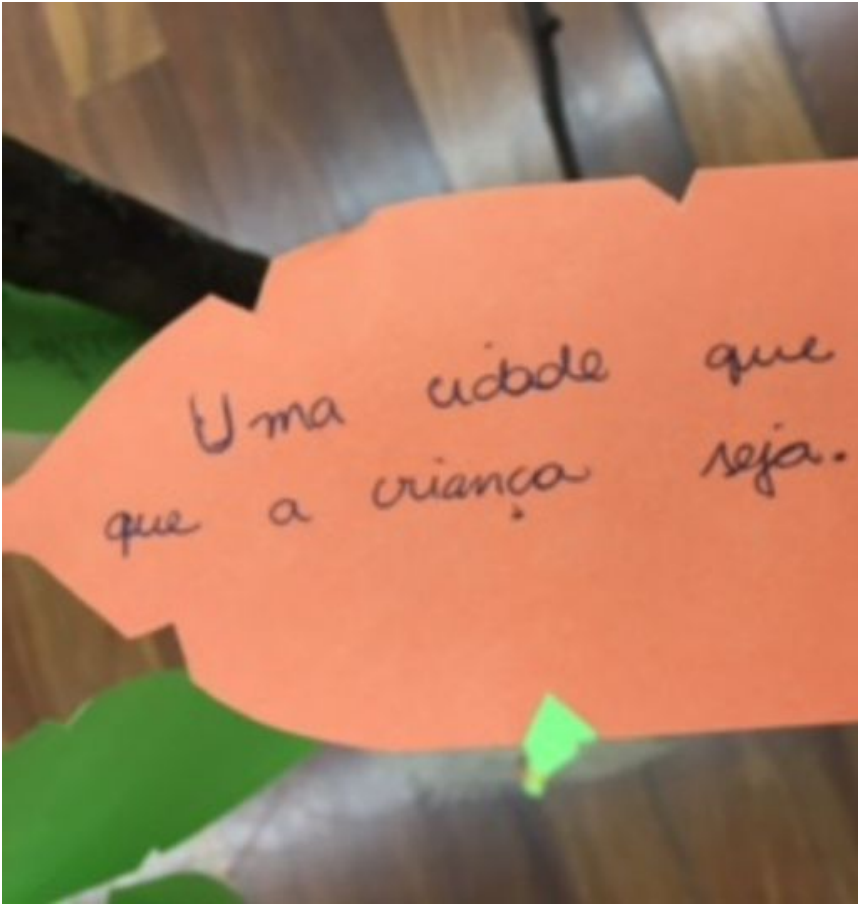 Uma cidade que
que a criança seja.